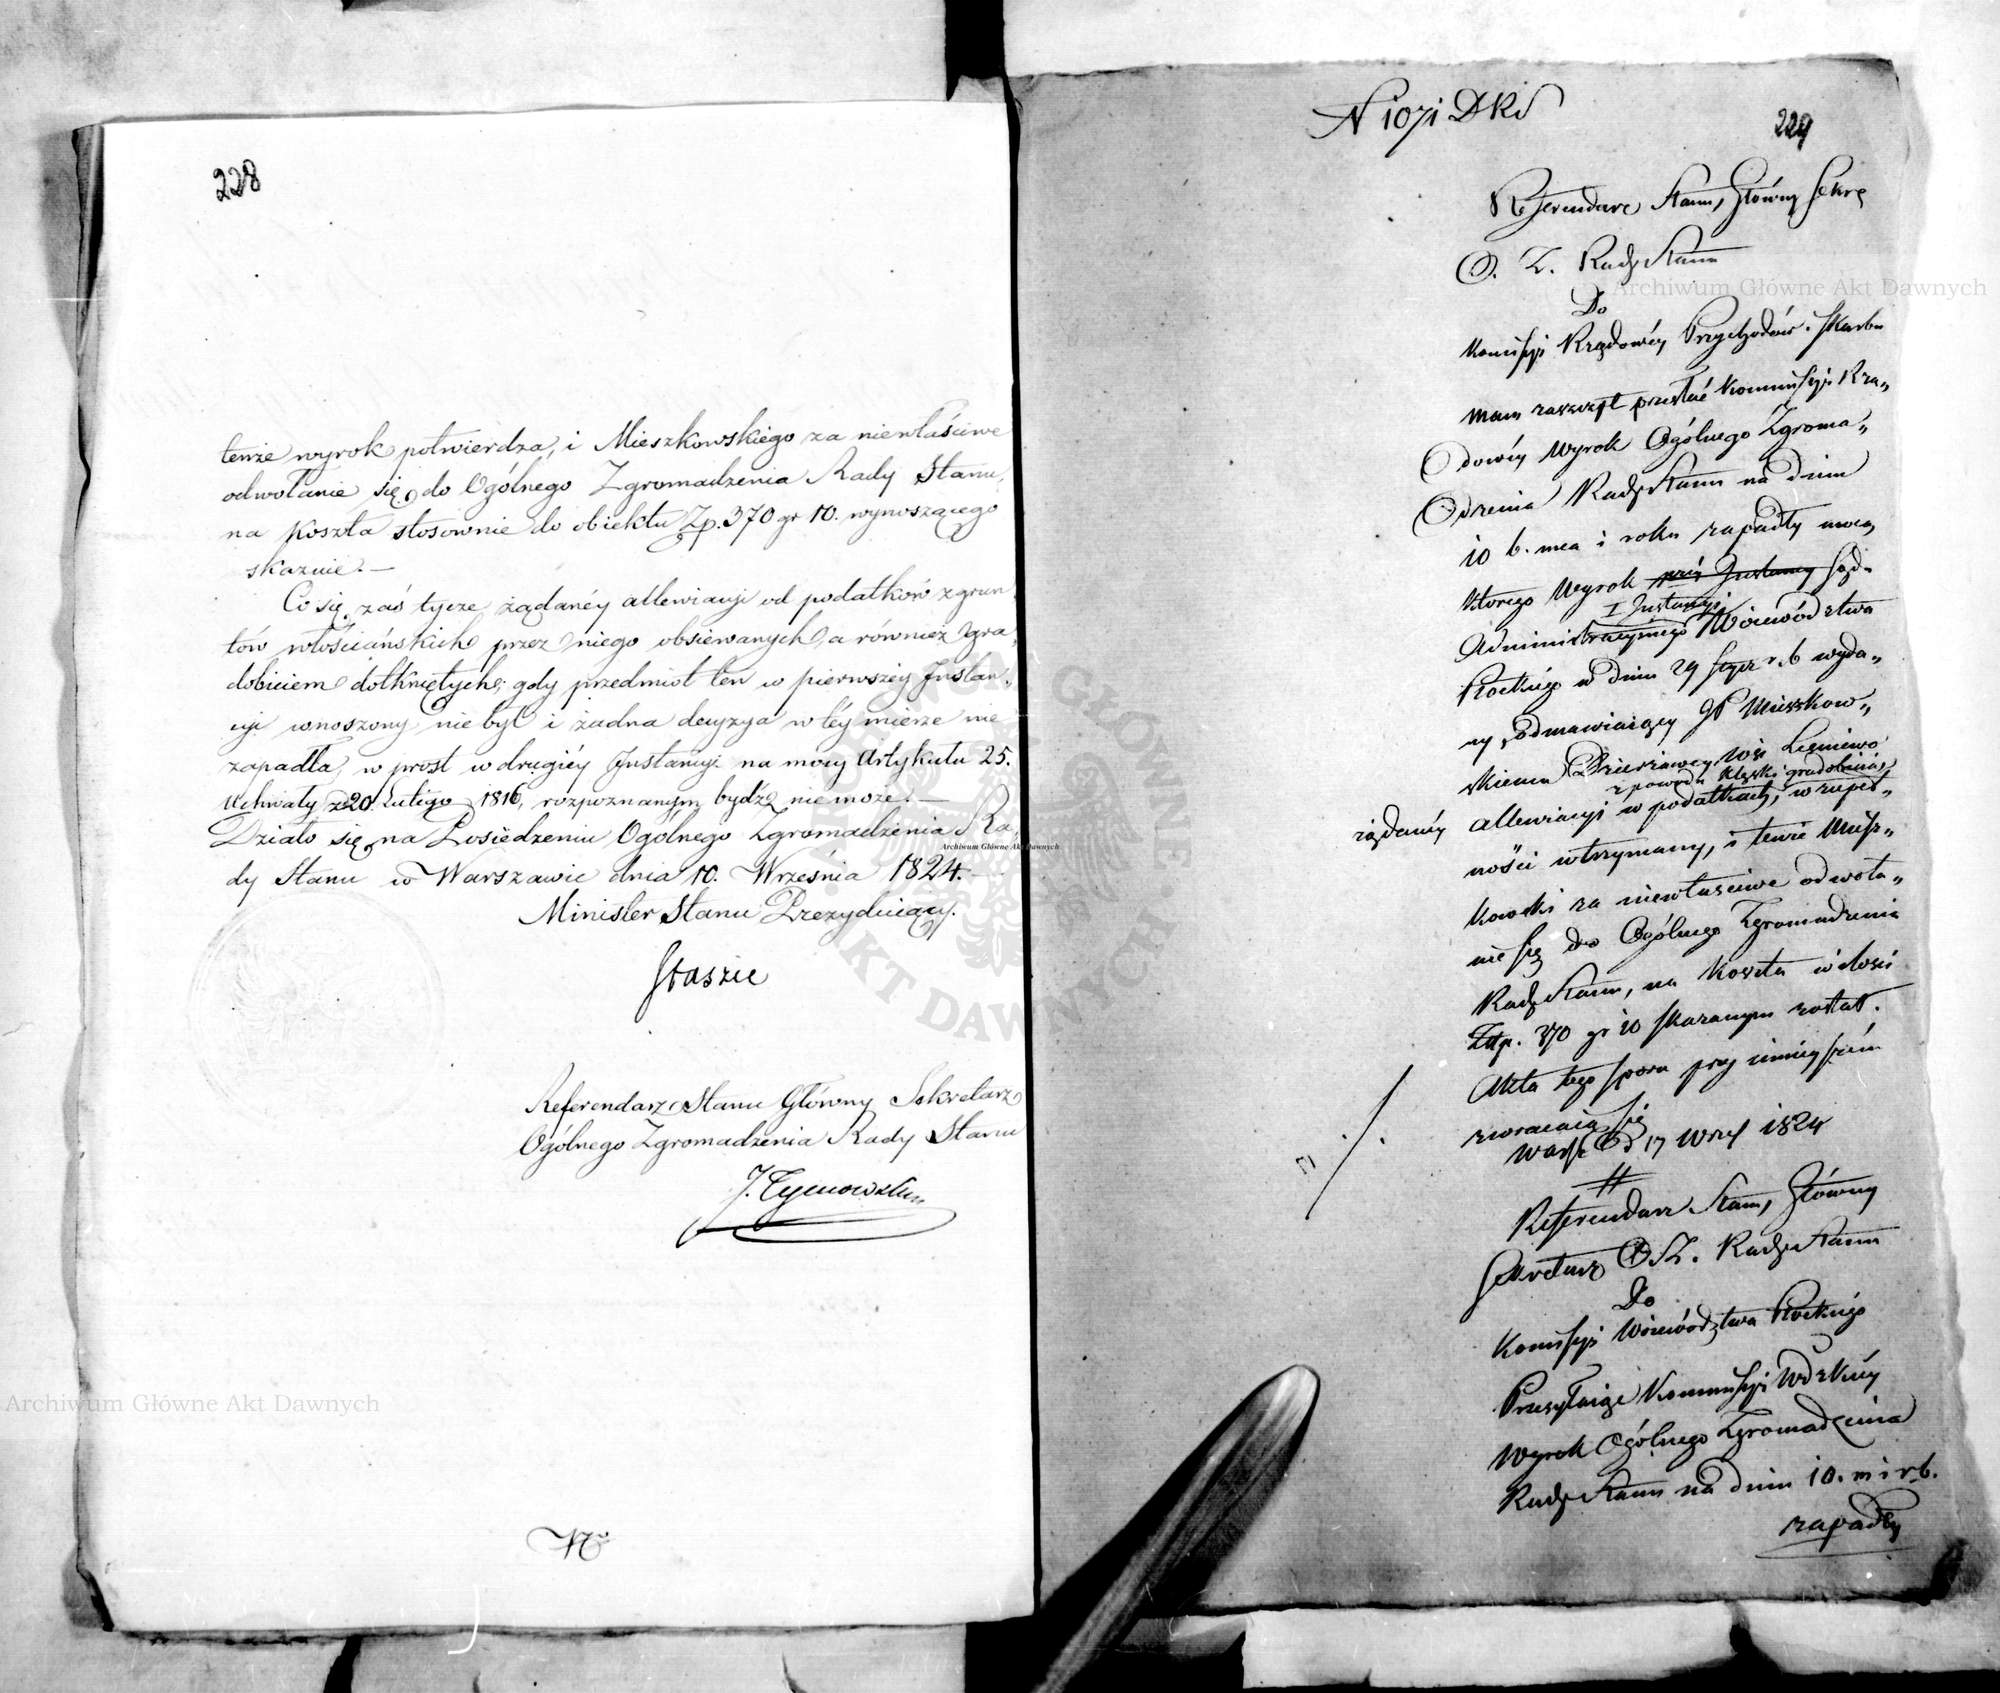 228
tenże wyrok potwierdza, i Mieszkowskiego za niewłaściwe
odwołanie się do Ogólnego Zgromadzenia Rady Stanu,
na koszta stosownie do obiektu Zp. 370 gr 10. wynoszącego
skazuie. —
Co się zaś tycze żądanéy allewiacyi od podatków z grun
tów włościańskich przez niego obsiewanych, a również gra„
dobiciem dotkniętych; gdy przedmiot ten w pierwszéy Instan„
cyi wnoszony nie był i żadna decyzya w téy mierze nie
zapadła, w prost w drugiéy Instancyi na mocy Artykułu 25.
Uchwały z 20. Lutego 1816, rozpoznanym bydź nie może. —
Działo się na Posiedzeniu Ogólnego Zgromadzenia Ra„
dy Stanu w Warszawie dnia 10. Września 1824. —
Minister Stanu Prezyduiący.
Staszic
Referendarz Stanu Główny Sekretarz
Ogólnego Zgromadzenia Rady Stanu
J. Tymowski
N 1071 DKS
229
Referendarz Stanu, Główny Sekre
O. Z. Rady Stanu
Do
Komissyi Rządowéy Przychodów i Skarbu
Mam zaszczyt przesłać Kommissyi Rzą„
dowéy Wyrok Ogólnego Zgroma„
dzenia Rady Stanu na dniu
10 b. mca i roku zapadły mocą
którego Wyrok Instancyi Sądu
I Instancyi
Administracyjnego Województwa
Płockiego w dniu 29 Stycz r. b wyda„
ny, odmawiaiący JP Mieszkow„
skiemu Dzierżawcy Wsi Leśniewo
z powodu klęski gradobicia,
żądanéy allewiacyi w podatkach, w zupeł„
ności utrzymany, i tenże Miesz„
kowski za niewłaściwe odwoła„
nie się do Ogólnego Zgromadzenia
Rady Stanu, na koszta w ilości
Złp. 370 gr 10 skazanym został.
Akta tego sporu przy ninieyszém
zwracaią się
Warsz d 17 Wrześ 1824
Referendarz Stanu, Główny
Sekretarz O. Z. Rady Stanu
Do
Komissyi Województwa Płockiego
Przesyłaiąc Kommissyi Wdzkiéy
Wyrok Ogólnego Zgromadzenia
Rady Stanu na dniu 10. m i r b.
zapadły
Archiwum Główne Akt Dawnych
Archiwum Główne Akt Dawnych
Archiwum Główne Akt Dawnych